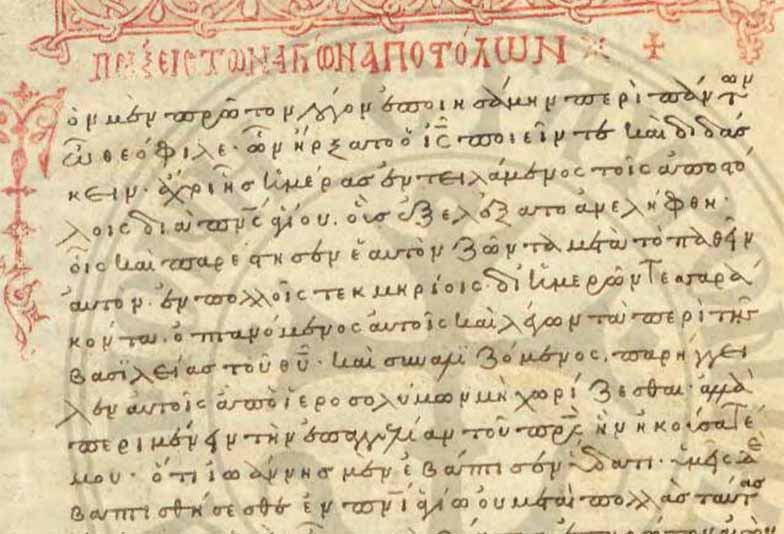 πράξεις τῶν ἁγίων ἀποστόλων
ὸν μὲν πρῶτον λόγον ἐποιησάμην περὶ πάντων
ὦ θεόφιλε· ὧν ἤρξατο ὁ ις ποιεῖν τε καὶ διδάσ
κειν· ἄχρι ἧς ἡμέρας ἐντειλάμενος τοῖς ἀποστό
λοις διὰ πνς ἁγίου. οὓς ἐξελέξατο ἀνελήφθη·
οἷς καὶ παρέστησεν ἑαυτὸν ζῶντα μετὰ τὸ παθεῖν
αὐτὸν· ἐν πολλοῖς τεκμηρίοις· δι ἡμερῶν τεσσαρά
κοντα· ὀπτανόμενος αὐτοῖς καὶ λέγων τὰ περὶ τῆς
βασϊλείας τοῦ θυ· καὶ συναλϊζόμενος, παρήγγει
λεν αὐτοῖς ἀπὸ ϊεροσολύμων μὴ χωρίζεσθαι· ἀλλὰ
περιμένειν τὴν ἐπαγγελίαν τοῦ πρς ἣν ἠκούσατέ
μου· ὅτι ἰωάννης μὲν ἐβάπτισεν ὕδατι· ὑμεῖς δὲ
βαπτισθήσεσθε ἐν πνι ἁγίω οὐ μετὰ πολλὰς ταύτας